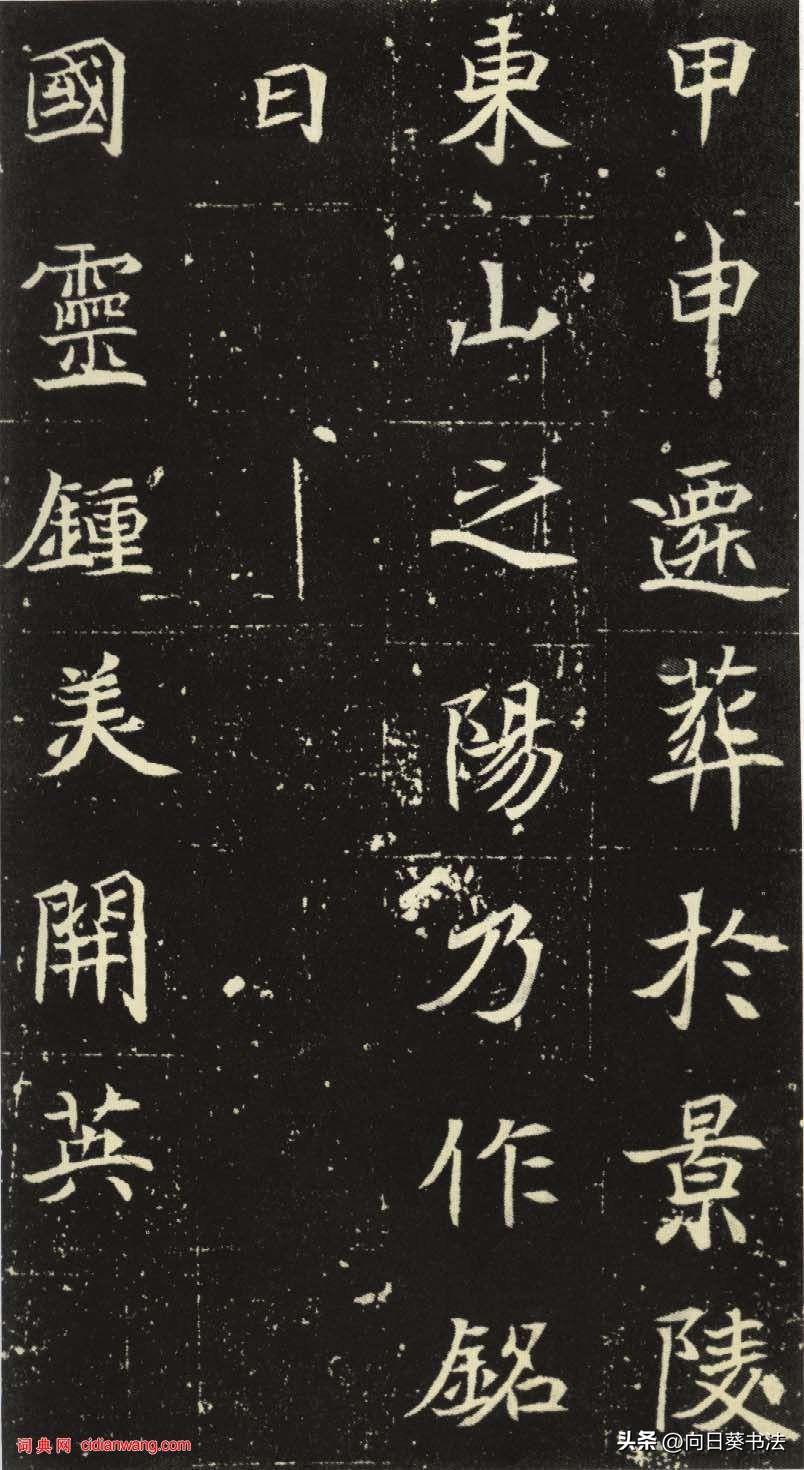 甲申遷葬於景陵
東山之陽乃作銘
曰
國靈鍾美開英
词典网 cidianwang.com
头条 @向日葵书法